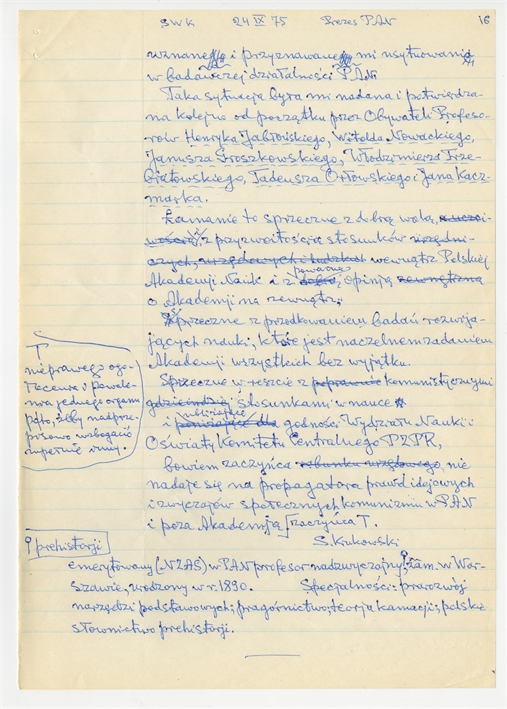 SWK 24 IX 75 Prezes PAN 16
wznane i przyznawane mi usytuowania
w badawczej działalności PAN.
Taka sytuacja była mi nadana i potwierdza-
na kolejno od początku przez Obywateli Profeso-
rów Henryka Jabłońskiego, Witolda Nowackiego,
Janusza Groszkowskiego, Włodzimierza Trze-
biatowskiego, Tadeusza Orłowskiego i Jana Kacz-
marka.
Łamanie to sprzeczne z dobrą wolą, z uczci-
wością, z przyzwoitością stosunków urzędni-
czych, urzędowych i ludzkich wewnątrz Polskiej
poważną
Akademji Nauk i z dobrą opinją zewnętrzną
o Akademji na zewnątrz.
Sprzeczne z przodkowaniem badań rozwija-
jących nauki, które jest naczelnem zadaniem
Akademji wszystkich bez wyjątku.
Sprzeczne w reszcie z poprawnie komunistycznymi
gdzieindziej stosunkami w nauce
i poniżające dla godności Wydziału Nauki i
Oświaty Komitetu Centralnego PZPR,
bowiem zaczyńca rabunku urzędowego nie
nadaje się na propagatora prawd idejowych
i zwyczajów społecznych komunizmu w PAN
i poza Akademją [zaczyńca T.
S. Krukowski
T
nieprawego ogo-
łocenia i powale-
nia jednego organu
poto, żeby nadprze-
pisowo wzbogacić
zupełnie inny.
prehistorji
emerytowany (NZAS) w PAN profesor nadzwyczajny, zam. w War-
szawie, urodzony w r. 1890. Specjalności: prarozwój
narzędzi podstawowych; pragórnictwo; teorja kamacji; polskie
słownictwo prehistorji.